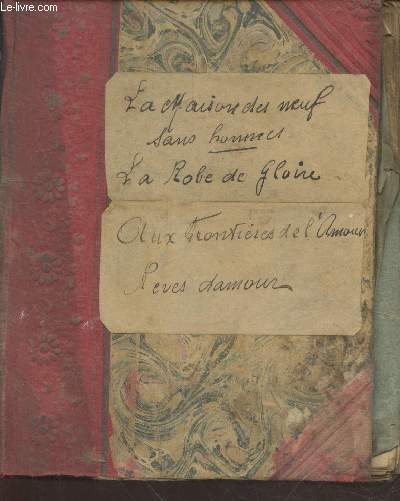 © Le-livre.com
La Maison des neuf
sans hommes
La Robe de Gloire
Aux Frontières de l'Amour
Reves d'amour